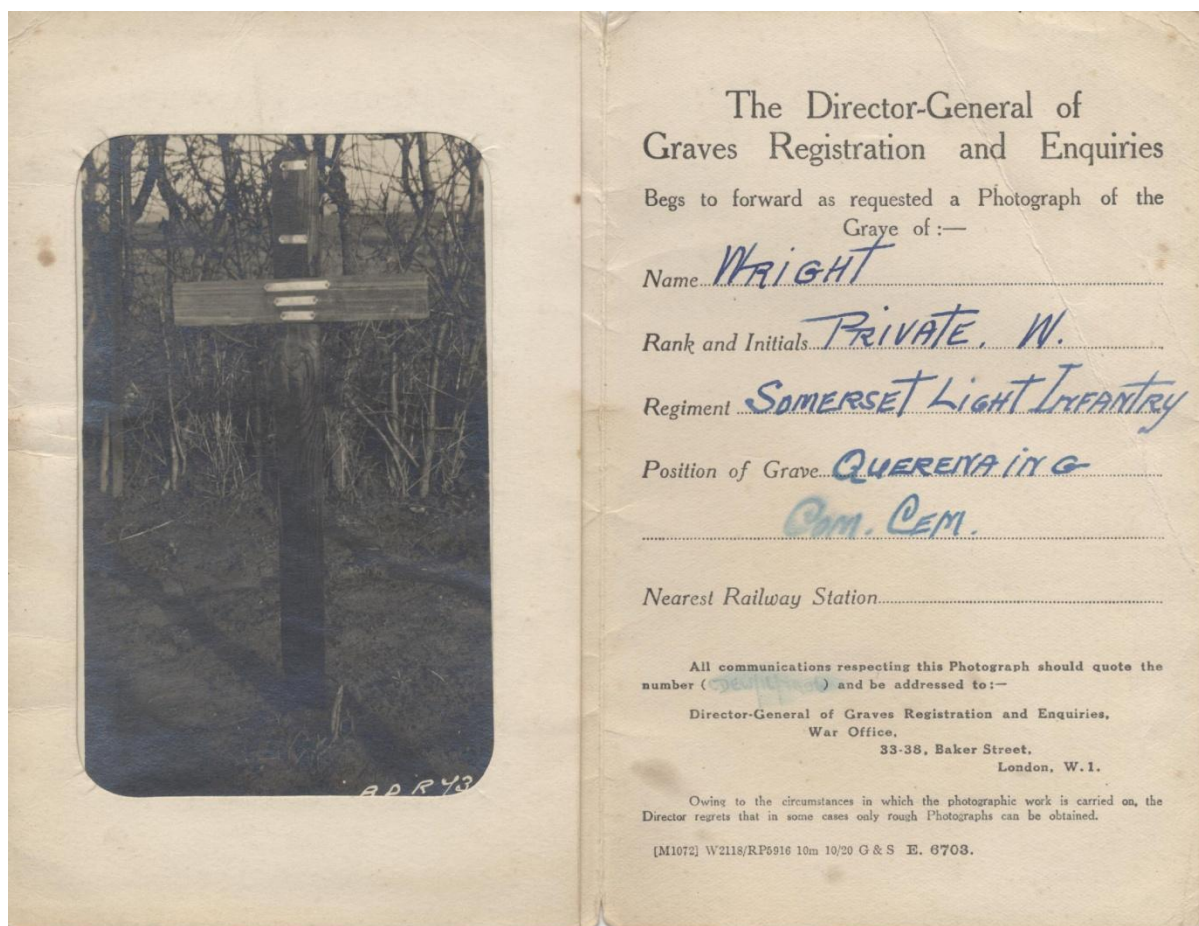 The Director-General of
Graves Registration and Enquiries
Begs to forward as requested a Photograph of the
Grave of :—
Name WRIGHT
Rank and Initials PRIVATE. W.
Regiment SOMERSET LIGHT INFANTRY
Position of Grave QUERENAING
COM. CEM.
Nearest Railway Station
All communications respecting this Photograph should quote the
number ( ) and be addressed to:—
Director-General of Graves Registration and Enquiries,
War Office,
33-38, Baker Street,
London, W.1.
Owing to the circumstances in which the photographic work is carried on, the
Director regrets that in some cases only rough Photographs can be obtained.
[M1072] W2118/RP5916 10m 10/20 G & S E. 6703.